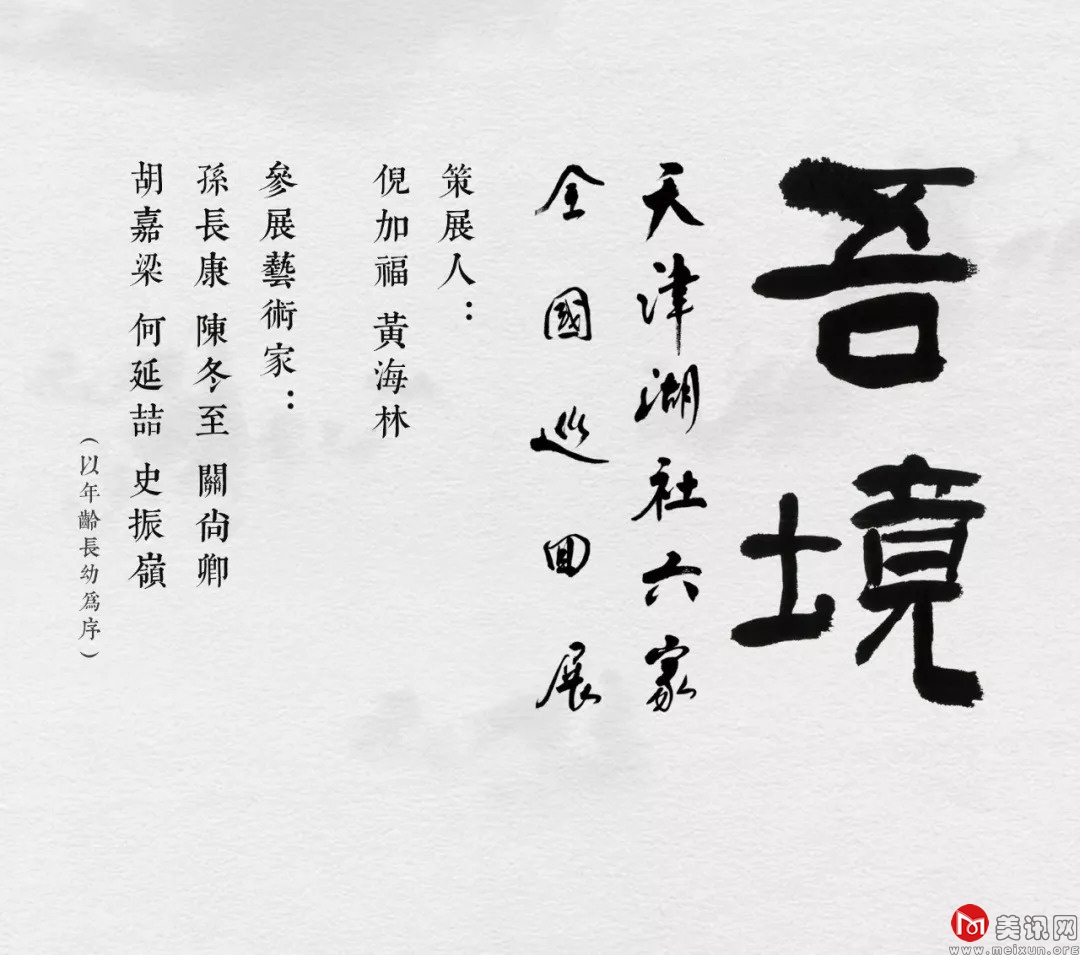 吾境
天津湖社六家
全國巡回展
策展人：
倪加福 黃海林
參展藝術家：
孫長康 陳冬至 關尙卿
胡嘉梁 何延喆 史振嶺
（以年齡長幼爲序）
美讯网
www.meixun.org